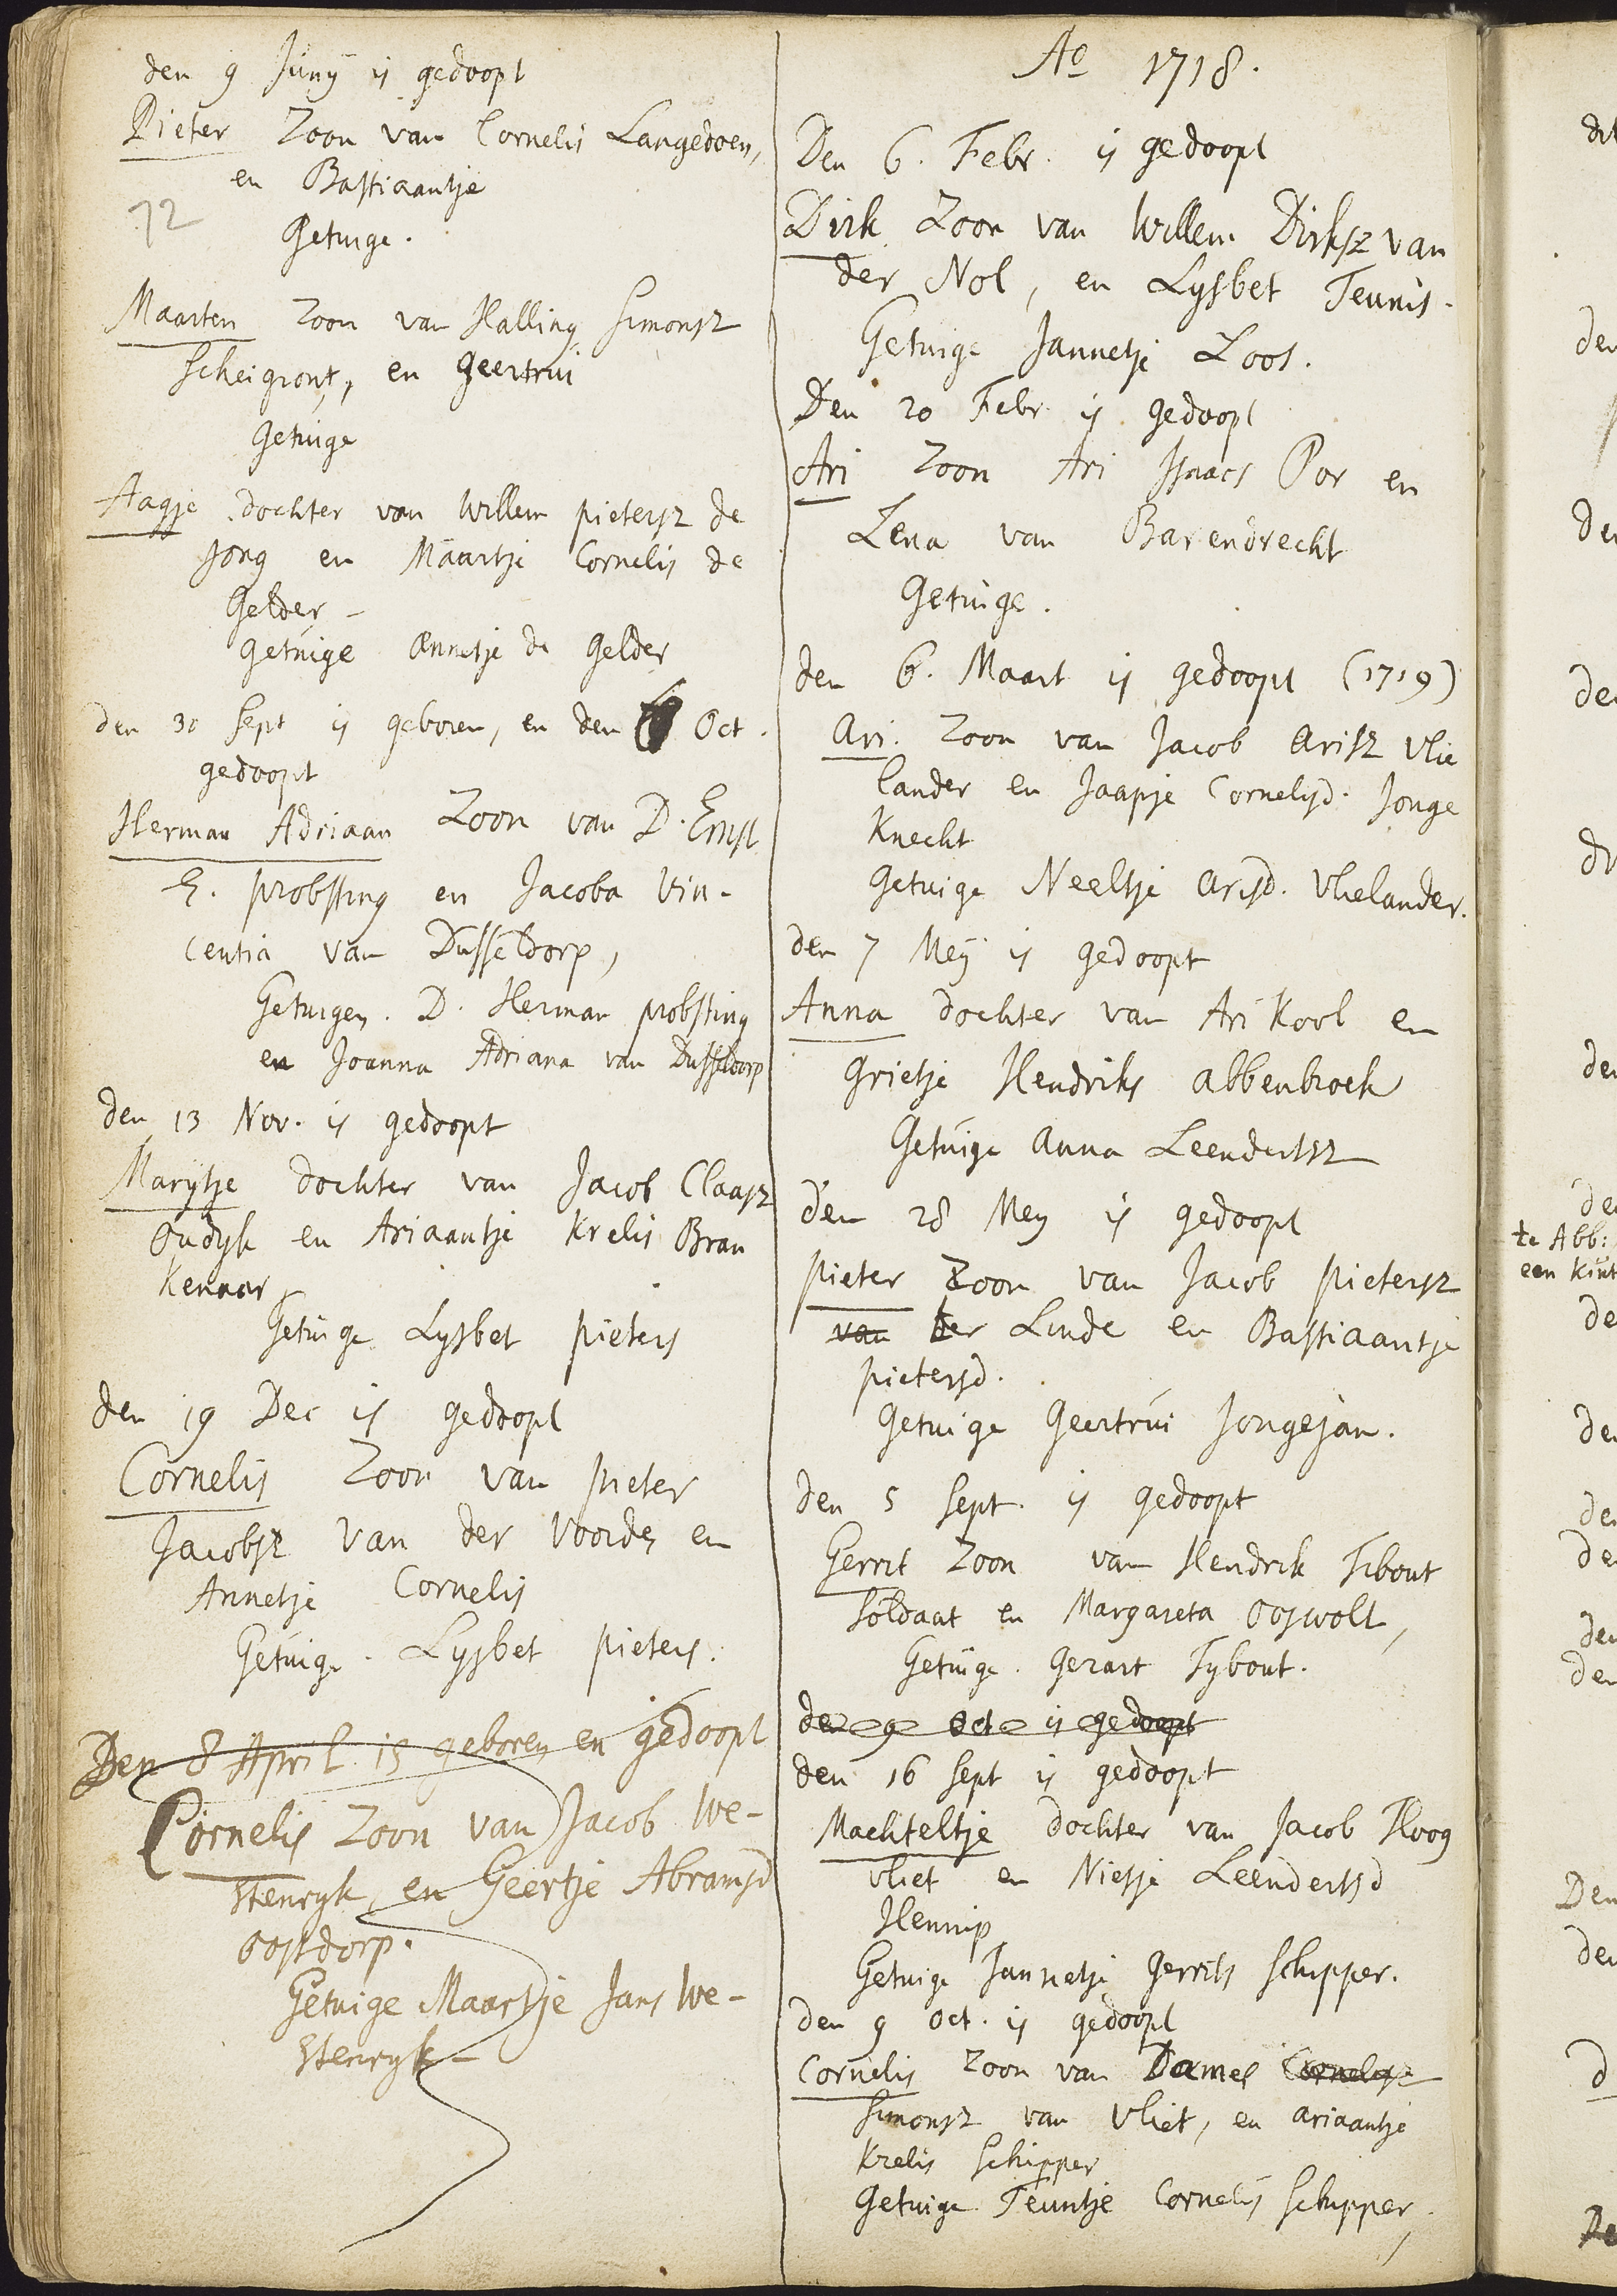 den 9 Junij is gedoopt
Pieter Zoon van Cornelis Langedoen,
en Bastiaantje
72
Getuige.
Maarten Zoon van Halling Simonsz
Scheigront, en geertrui
getuige
Aagje dochter van Willem pietersz de
Jong en Maartje Cornelis de
Gelder -
getuige Annetje de Gelder
den 30 Sept is geboren, en den 6 Oct.
gedoopt
Herman Adriaan Zoon van D. Ernst
E. probsting en Jacoba Vin-
centia van Dusseldorp,
Getuigen. D. Herman probsting
en Joanna Adriana van Dusseldorp
den 13 Nov. is gedoopt
Marijtje dochter van Jacob Claasz
Oudyk en Ariaantje Krelis Bran
kenaar
Getuige Lysbet pieters
den 19 Dec is gedoopt
Cornelis Zoon van pieter
Jacobsz van der Voorde en
Annetje Cornelis
Getuige. Lysbet pieters.
Den 8 April is geboren en gedoopt
Cornelis Zoon van Jacob We-
stenryk, en Geertje Abramsd
oostdorp.
Getuige Maartje Jans We-
stenryk -
Ao 1718.
Den 6. Febr. is gedoopt
Dirk Zoon van Willem Dirksz van
der Nol, en Lysbet Teunis.
Getuige Jannetje Loos.
Den 20 Febr is gedoopt
Ari Zoon Ari Isaacs Por en
Lena van Barendrecht
Getuige.
den 6. Maart is gedoopt (1719)
Ari. Zoon van Jacob Arisz Vlie
lander en Jaapje Cornelisd. Jonge
Knecht
Getuige Neeltje Arisd. Vlielander.
den 7 Meij is gedoopt
Anna dochter van Ari Kool en
grietje Hendriks abbenbroek
Getuige Anna Leendertsz
den 28 Mey is gedoopt
pieter Zoon van Jacob pietersz
van ter Linde en Bastiaantje
pietersd.
Getuige Geertrui Jongejan.
den 5 Sept. is gedoopt
Gerrit Zoon van Hendrik Tibout
Soldaat en Margareta Ooswolt,
Getuige. Gerart Tybout.
den 9 Oct is gedoopt
den 16 Sept is gedoopt
Machteltje dochter van Jacob Hoog
vliet en Nietje Leendertsd
Hennip
Getuige Jannetje Gerrits Schipper.
den 9 Oct. is gedoopt
Cornelis Zoon van Damel Cornelisz
Simonsz van Vliet, en ariaantje
Krelis Schipper
Getuige Teuntje Cornelis Schipper.
te Abb:
een kint